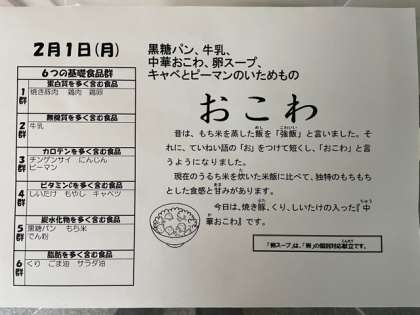 2月1日(月)
6つの基礎食品群
蛋白質を多く含む食品
1群
焼き豚肉 鶏肉 鶏卵
無機質を多く含む食品
2群
牛乳
カロテンを多く含む食品
3群
チンゲンサイ にんじん
ピーマン
ビタミンCを多く含む食品
4群
しいたけ もやし キャベツ
炭水化物を多く含む食品
5群
黒糖パン もち米
でん粉
脂肪を多く含む食品
6群
くり ごま油 サラダ油
黒糖パン、牛乳、
中華おこわ、卵スープ、
キャベとピーマンのいためもの
おこわ
昔は、もち米を蒸した飯を「強飯」と言いました。そ
れに、ていねい語の「お」をつけて短くし、「おこわ」と言
うようになりました。
現在のうるち米を炊いた米飯に比べて、独特のもちもち
とした食感と甘みがあります。
今日は、焼き豚、くり、しいたけの入った『中
華おこわ』です。
「卵スープ」は、「卵」の個別対応献立です。